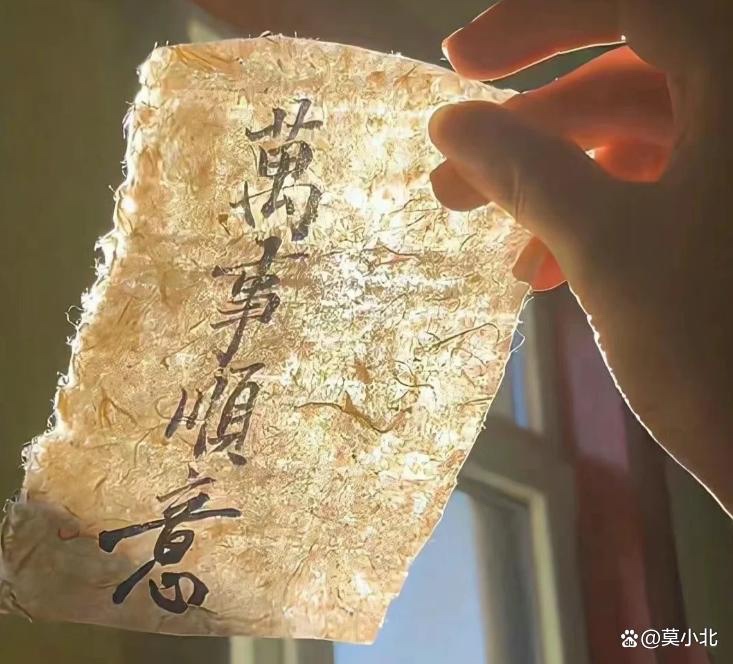 萬事順意
@莫小北